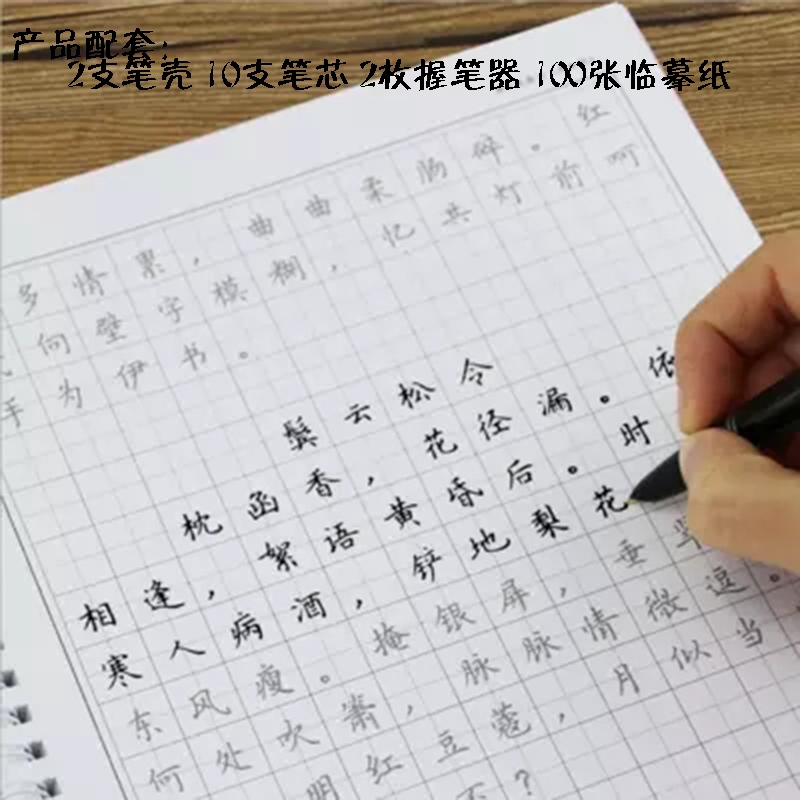 产品配套:
2支笔壳 10支笔芯 2枚握笔器 100张临摹纸
多情累,曲曲柔肠碎。红
向壁字模糊,忆共灯前呵
手为伊书。
鬓云松令
枕函香,花径漏。依
相逢,絮语黄昏后。时
寒人病酒,铲地梨花
东风瘦。掩银屏,垂翠
何处吹箫,脉脉情微逗。
明红豆蔻,月似当
不?